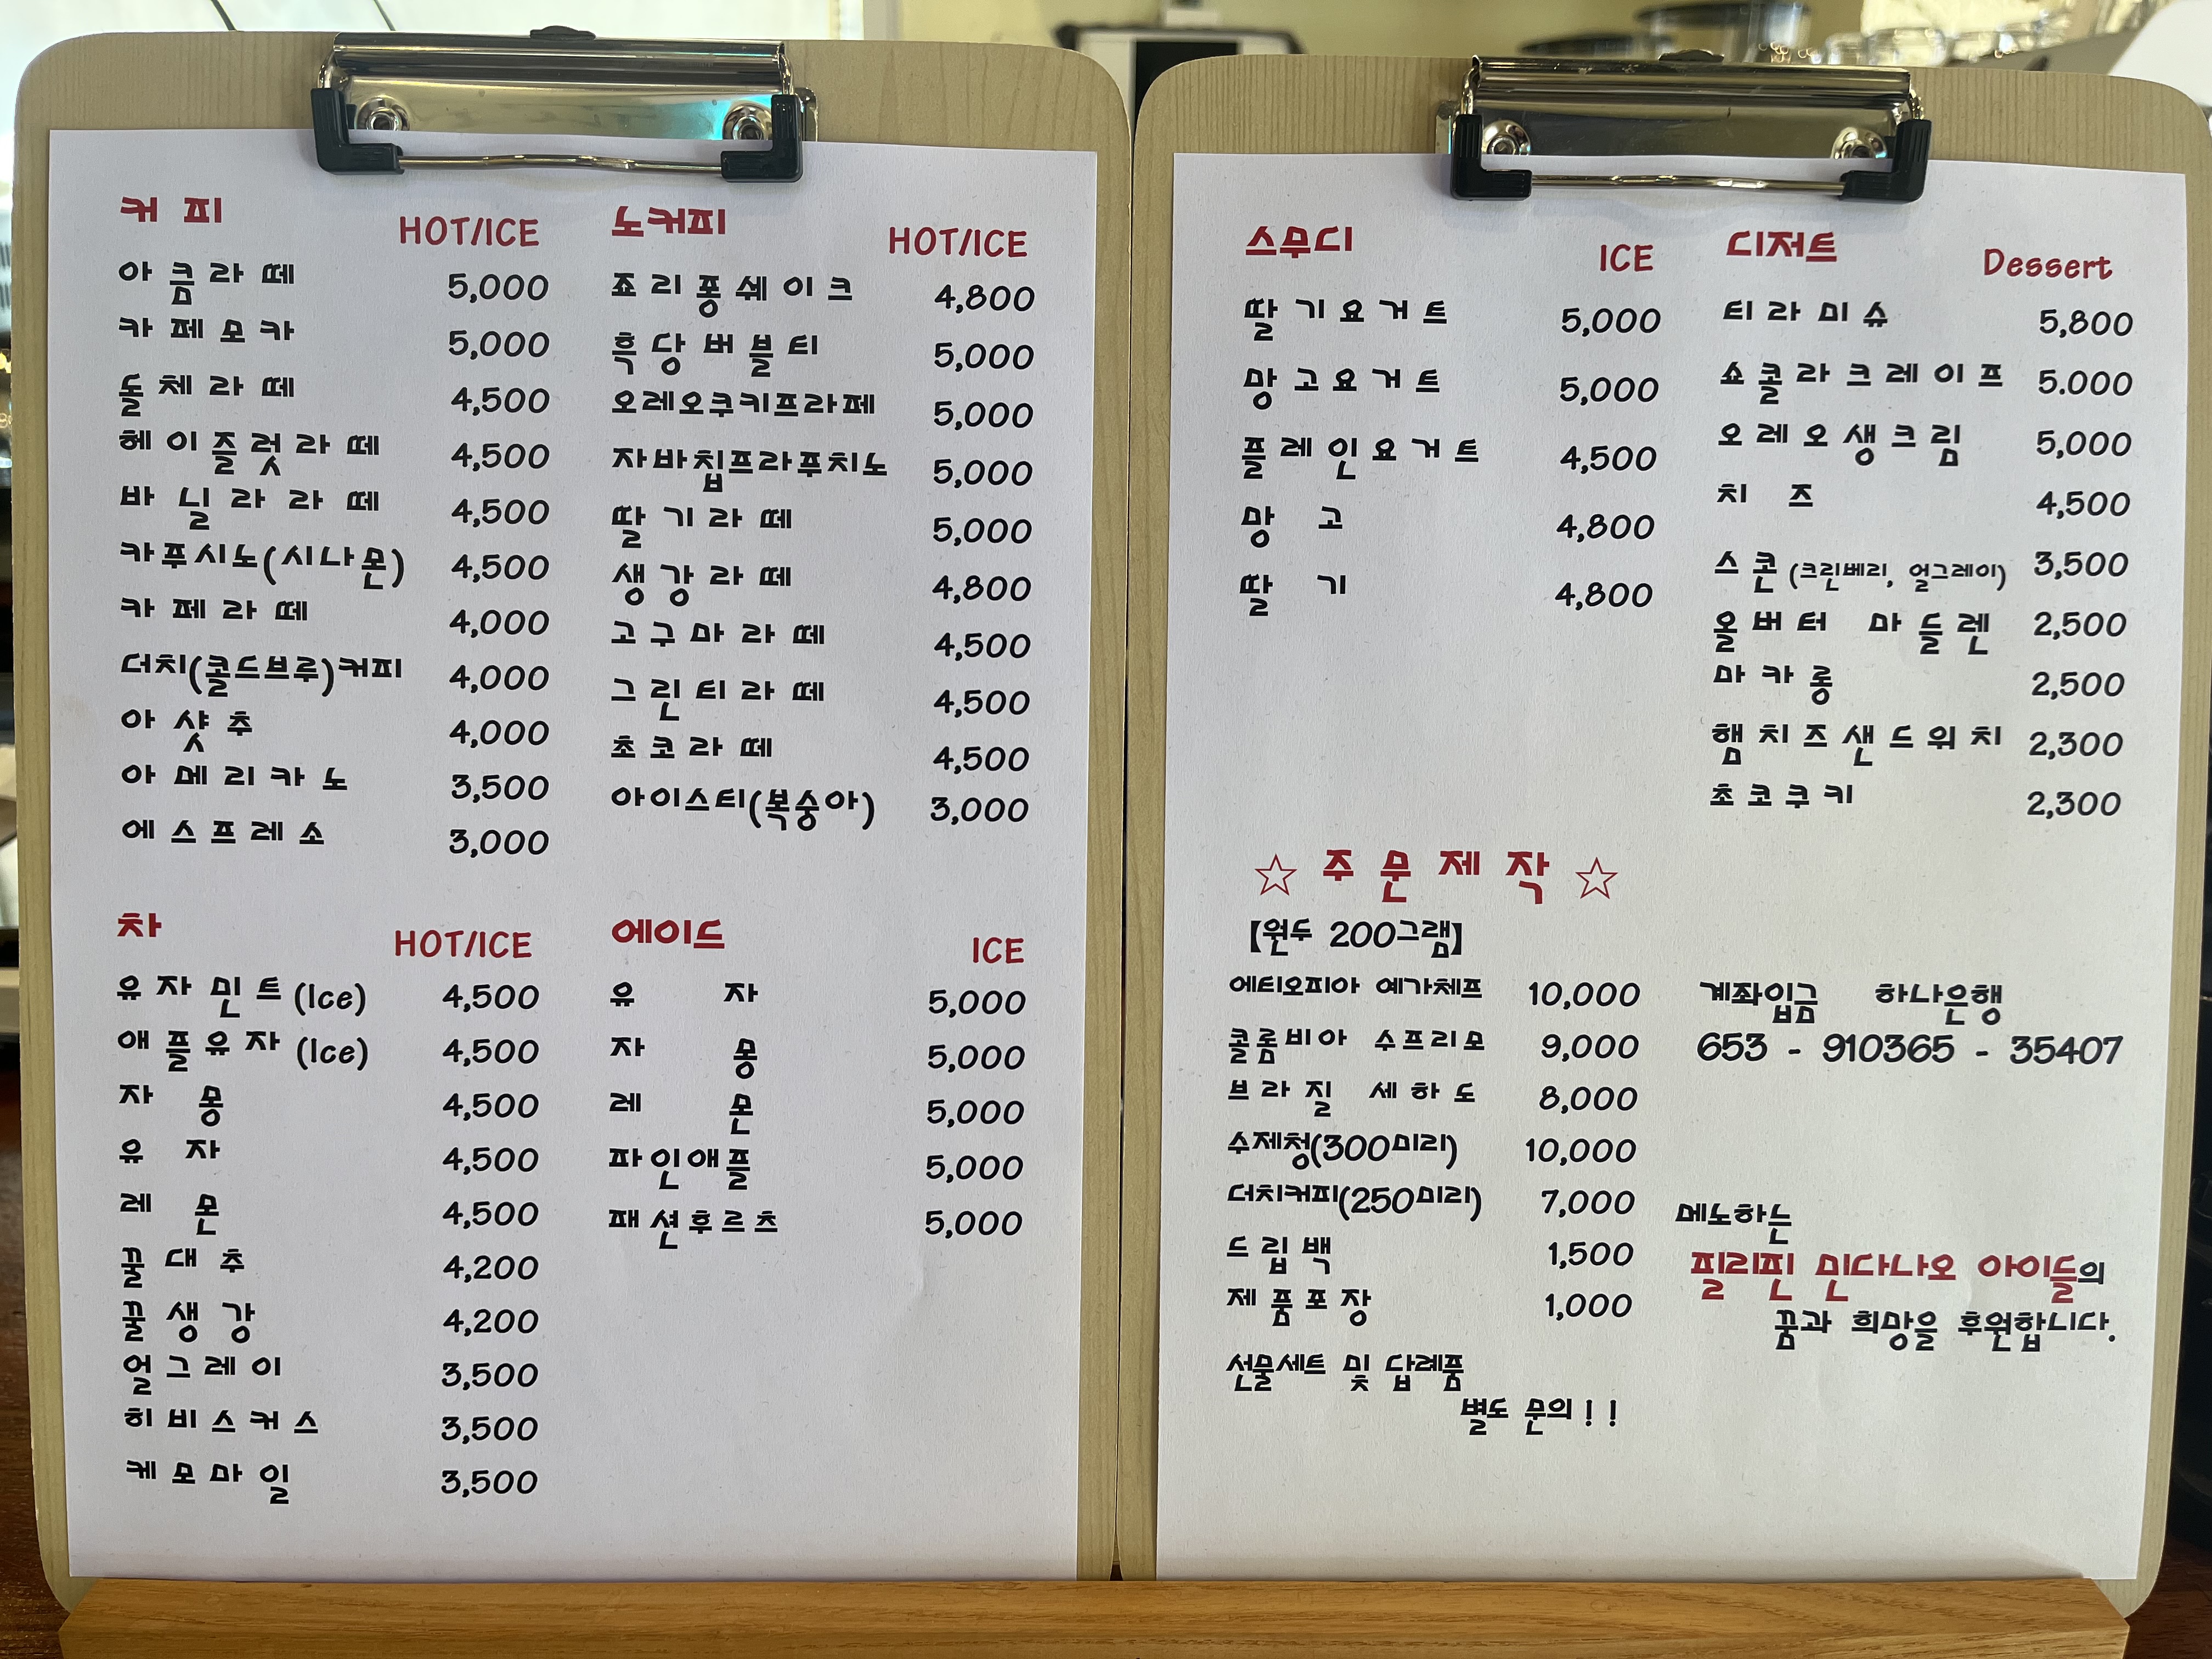 커 피 HOT/ICE
아 큼 라 떼 5,000
카 페 모 카 5,000
돌 체 라 떼 4,500
헤 이 즐 럿 라 떼 4,500
바 닐 라 라 떼 4,500
카푸시노(시나몬) 4,500
카 페 라 떼 4,000
더치(콜드브루)커피 4,000
아 샷 추 4,000
아 메 리 카 노 3,500
에 스 프 레 소 3,000
노커피 HOT/ICE
죠 리 퐁 쉐 이 크 4,800
흑 당 버 블 티 5,000
오레오쿠키프라페 5,000
자바칩프라푸치노 5,000
딸 기 라 떼 5,000
생 강 라 떼 4,800
고 구 마 라 떼 4,500
그 린 티 라 떼 4,500
초 코 라 떼 4,500
아이스티(복숭아) 3,000
차 HOT/ICE
유 자 민 트 (Ice) 4,500
애 플 유 자 (Ice) 4,500
자 몽 4,500
유 자 4,500
레 몬 4,500
꿀 대 추 4,200
꿀 생 강 4,200
얼 그 레 이 3,500
히 비 스 커 스 3,500
케 모 마 일 3,500
에이드 ICE
유 자 5,000
자 몽 5,000
레 몬 5,000
파인애플 5,000
패션후르츠 5,000
스무디 ICE
딸 기 요 거 트 5,000
망 고 요 거 트 5,000
플 레 인 요 거 트 4,500
망 고 4,800
딸 기 4,800
디저트 Dessert
티 라 미 슈 5,800
쇼 콜 라 크 레 이 프 5.000
오 레 오 생 크 림 5,000
치 즈 4,500
스 콘 (크린베리, 얼그레이) 3,500
올 버 터 마 들 렌 2,500
마 카 롱 2,500
햄 치 즈 샌 드 위 치 2,300
초 코 쿠 키 2,300
☆ 주 문 제 작 ☆
【원두 200그램】
에티오피아 예가체프 10,000
콜롬비아 수프리모 9,000
브 라 질 세 하 도 8,000
수제청(300미리) 10,000
더치커피(250미리) 7,000
드 립 백 1,500
제 품 포 장 1,000
선물세트 및 답례품
별도 문의 ! !
계좌입금 하나은행
653 - 910365 - 35407
메노하는
필리핀 민다나오 아이들의
꿈과 희망을 후원합니다.